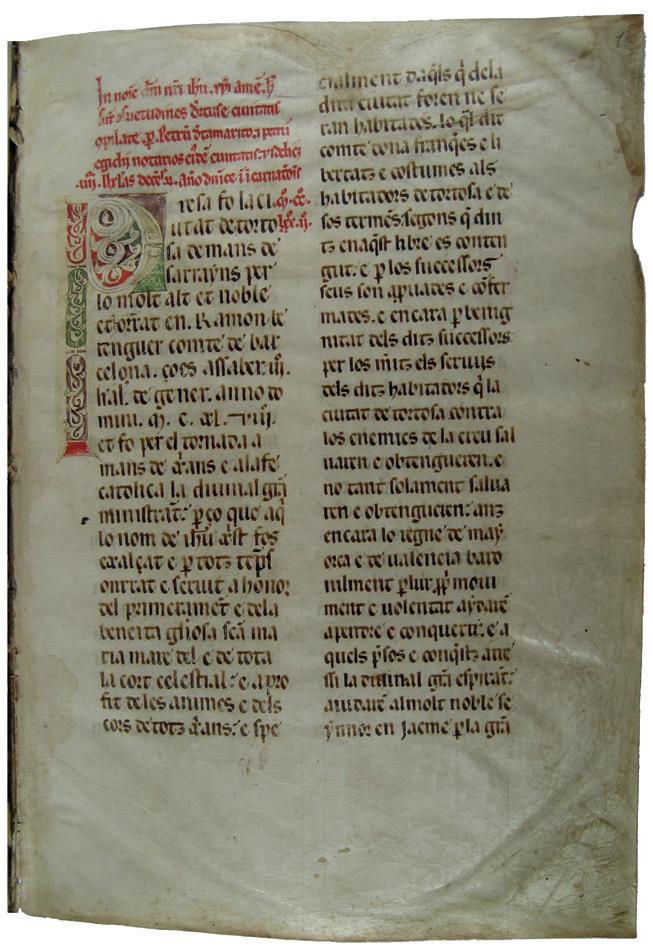 In noïe dñi nr̃i ihũ. xp̃i amẽ. h̃
sũt ꝯsuetudines d̃tuse ciuitatis
ꝯpilate p̱. Petrũ d̃tamarito
notarios eid̃e ciuitatis
año dñice ĩcarnacõis
resa fo la ci
utat de torto
sa de mans de
sarrayns per
lo molt alt et noble
et oñrat en. Ramon be
renguer comte de bar
celona. ço es assaber iij.
kal. de gener. anno do
mini. ꝳ. c. xl. viij.
et fo per el tornada a
mans de xp̃ians e a la fe
catolica la diuinal grã
ministrãt: p̱ço que aq̃l
lo nom de ih̃u xp̃ist fos
exalçat e p̱ totz tẽps
onrrat e seruit a honor
del primeramẽt e de la
beneita gl̃iosa scã ma
ria mare del e de tota
la cort celestial: e a pro
fit de les animes e dels
cors de totz xp̃ians: e spe
cialment daq̃ls q̃ de la
dita ciutat foren ne se
ran habitadós. lo q̃l dit
comte dona franq̃es e li
bertatz e costumes als
habitadors de tortosa e de
sos termẽs. segons q̃ din
tz enaq̃st libre es conten
gut. e p̱ los successors
seus son apuades e cõfer
mades. e encara p̱ benig
nitat dels ditz successors
per los mltz els seruiis
dels ditz habitadors q̃ la
ciutat de tortosa contra
los enemics de la creu sal
uaren e obtengueren. e
no tant solament salua
ren e obtengueren: anz
encara lo regne de may
orca e de ualencia baro
nilment p̱ lur ꝓpi moui
ment e uolentat aydarẽ
a pendre e conquerir. e a
quels p̃sos e conq̃stz axie
ssi la diuinal grã espirãt:
aiudarẽ al molt noble se
ynnor en Jacme p̱ la grã